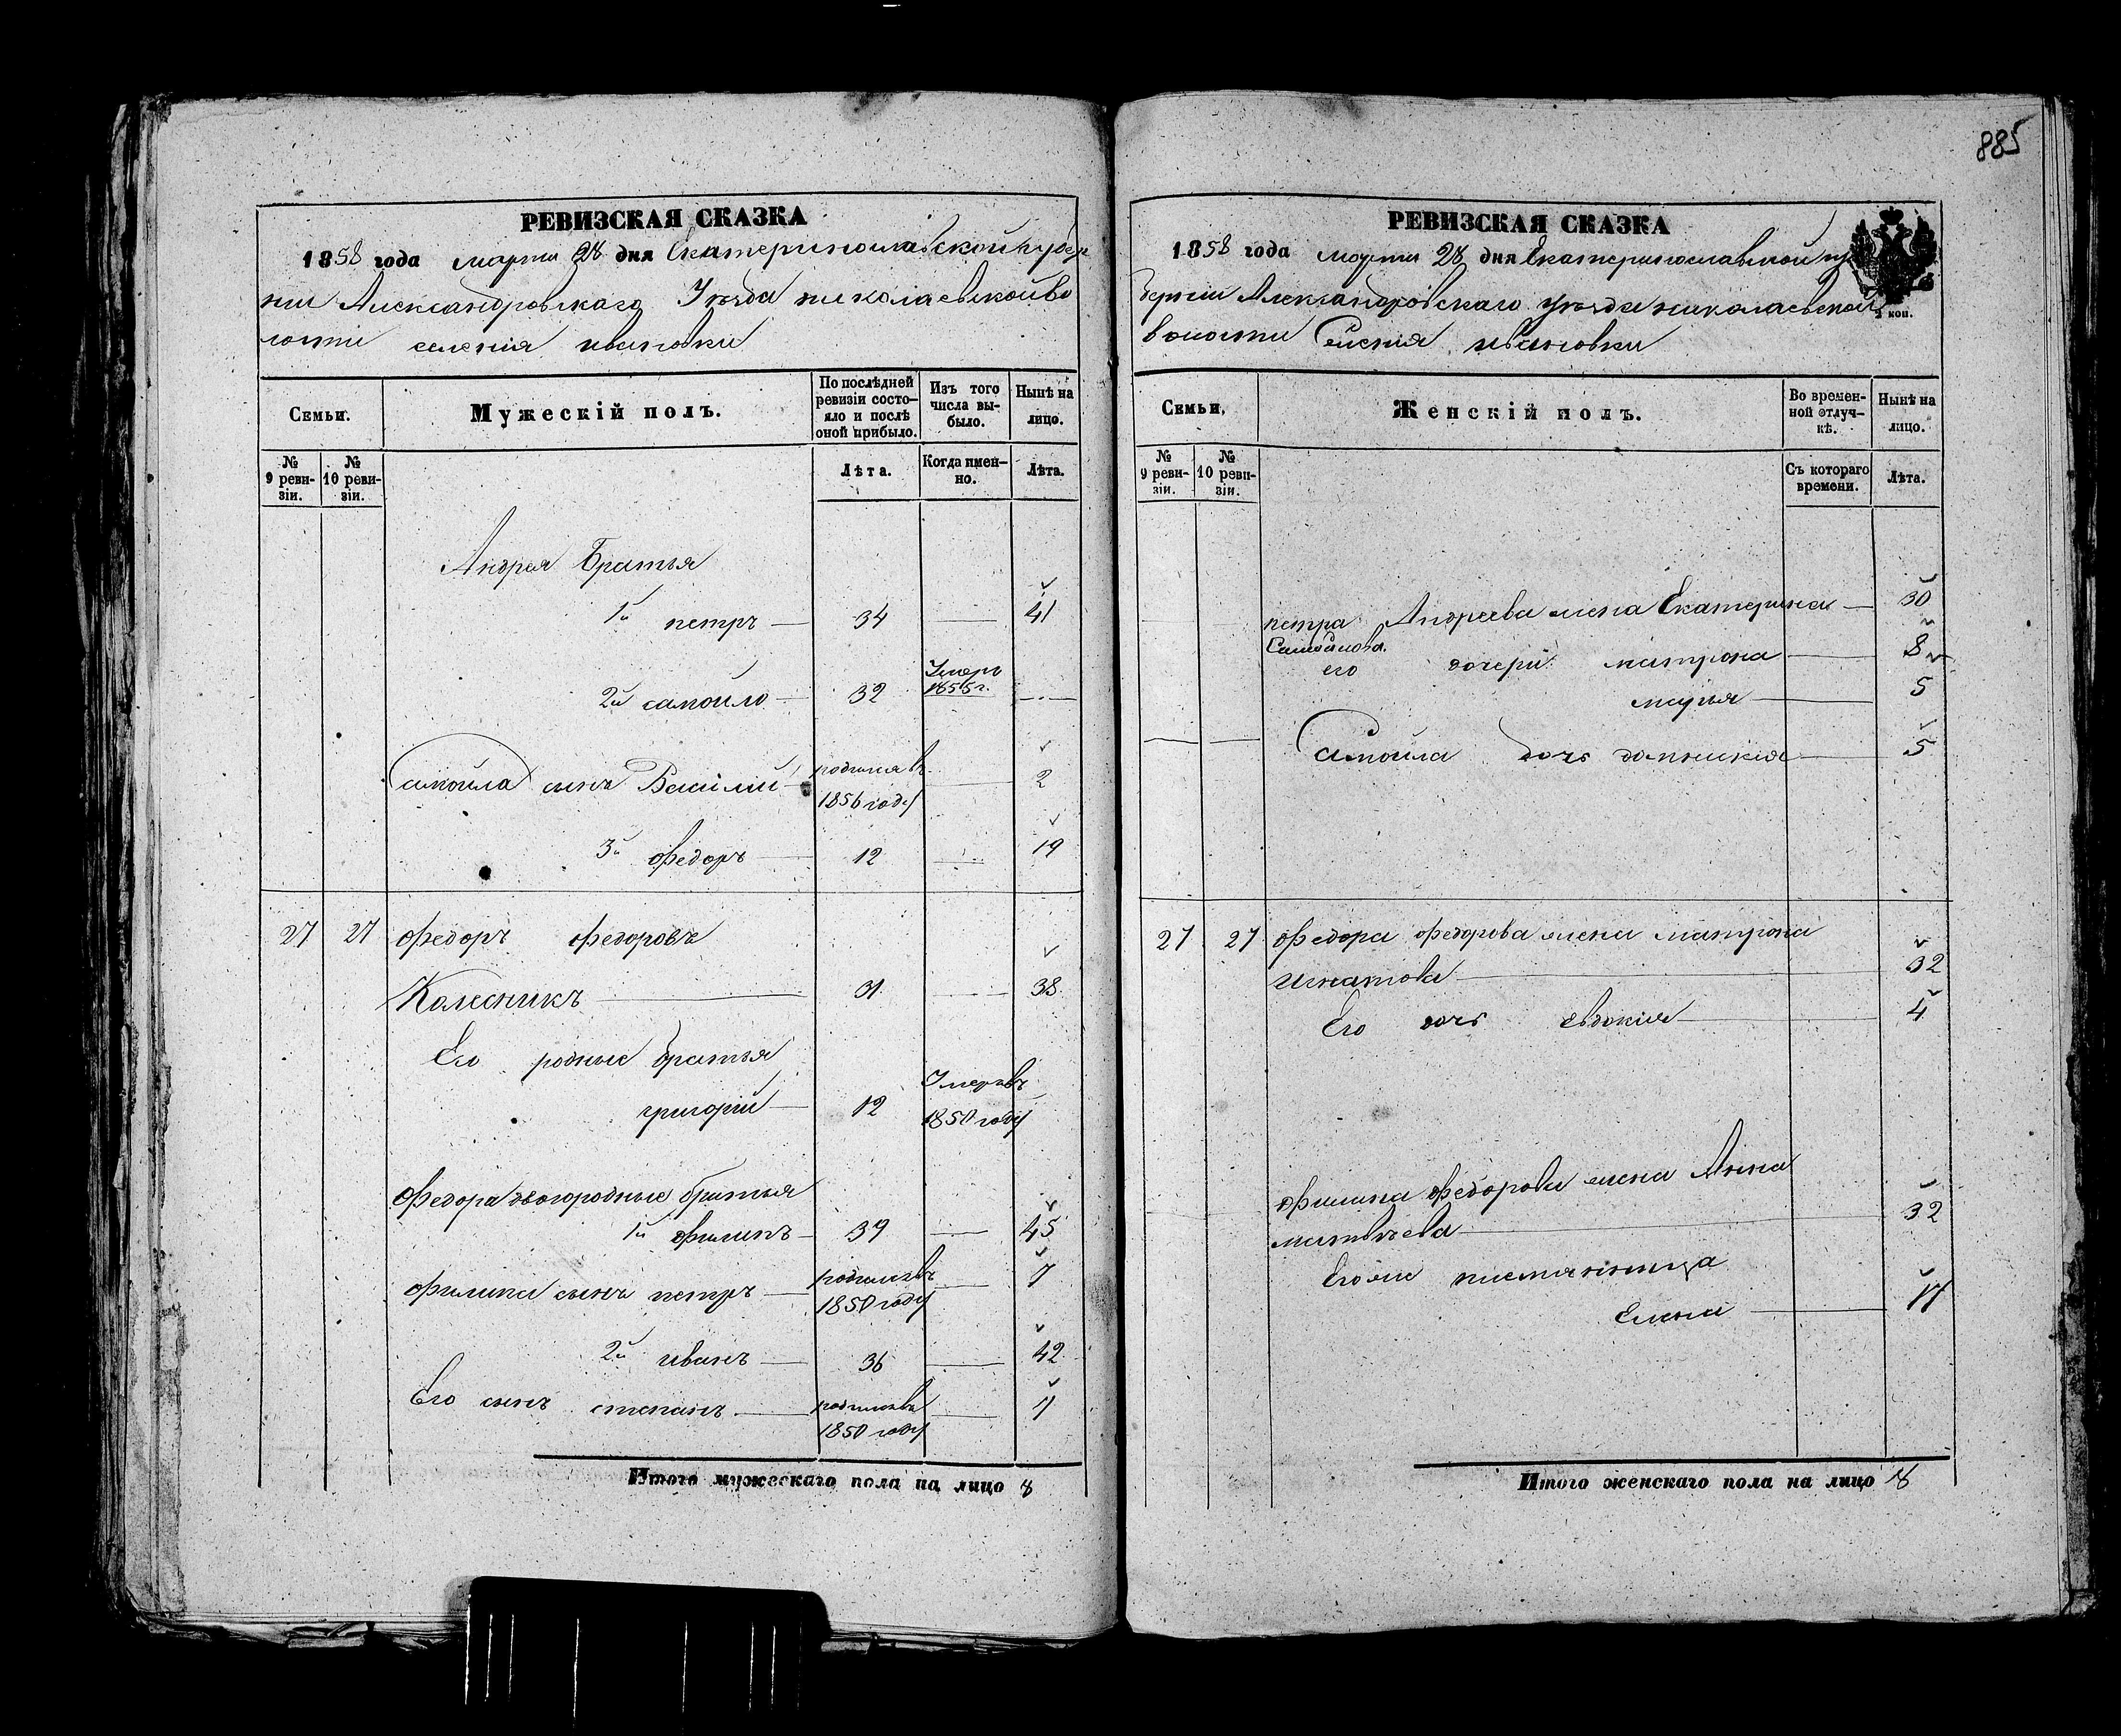 885
РЕВИЗСКАЯ СКАЗКА
1858 года марта 28 дня Екатеринославской губер
нии Александровскаго Уѣзда николаевской во
лости селенія ивановки
Семьи.
Мужескій полъ.
По послѣдней ревизіи состо-
яло и послѣ
оной прибыло.
Изъ того
числа вы-
было.
Нынѣ на
лицо.
№
9 реви-
зіи.
№
10 реви-
зіи.
Лѣта.
Когда имен-
но.
Лѣта.
Андрея Братья
1й петръ 34 41
2й самойло 32 Умеръ 1855 г.
самойла сынъ Василий родился въ 1856 году 2
3й федоръ 12 19
27 27 федоръ федоровъ
Колесникъ 31 38
Его родные братья
григорий 12 Умеръ въ 1850 году
Федора двогородные братья
1й филипъ 39 45
филипа сынъ петръ родился въ 1850 году 7
2й иванъ 36 42
Его сынъ степанъ родился въ 1850 году 7
Итого мужескаго пола на лицо 8
РЕВИЗСКАЯ СКАЗКА
1858 года марта 28 дня Екатеринославской гу
берніи Александровскаго уѣзда николаевской
волости Селенія ивановки
2 коп.
Семьи.
Женскій полъ.
Во времен-
ной отлуч-
кѣ.
Нынѣ на
лицо.
№
9 реви-
зіи.
№
10 реви-
зіи.
Съ котораго
времени.
Лѣта.
петра Андреева жена Екатерина 30
его дочери матрона 8
марья 5
Самойла дочь домникия 5
27 27 федора федорова жена матрона
игнатова 32
Его дочь евдокия 4
филипа федорова жена Анна
матвѣева 32
Его же племянница
Елена 17
Итого женскаго пола на лицо 8